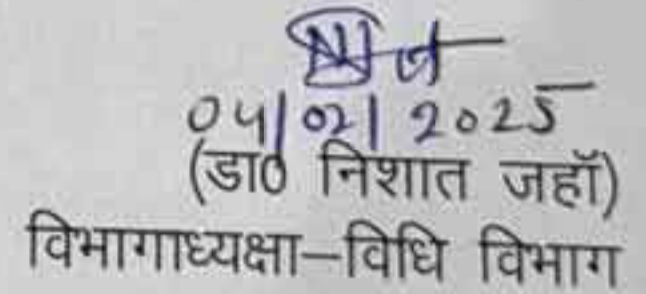 04/02/2025
(डा0 निशात जहॉ)
विभागाध्यक्षा–विधि विभाग